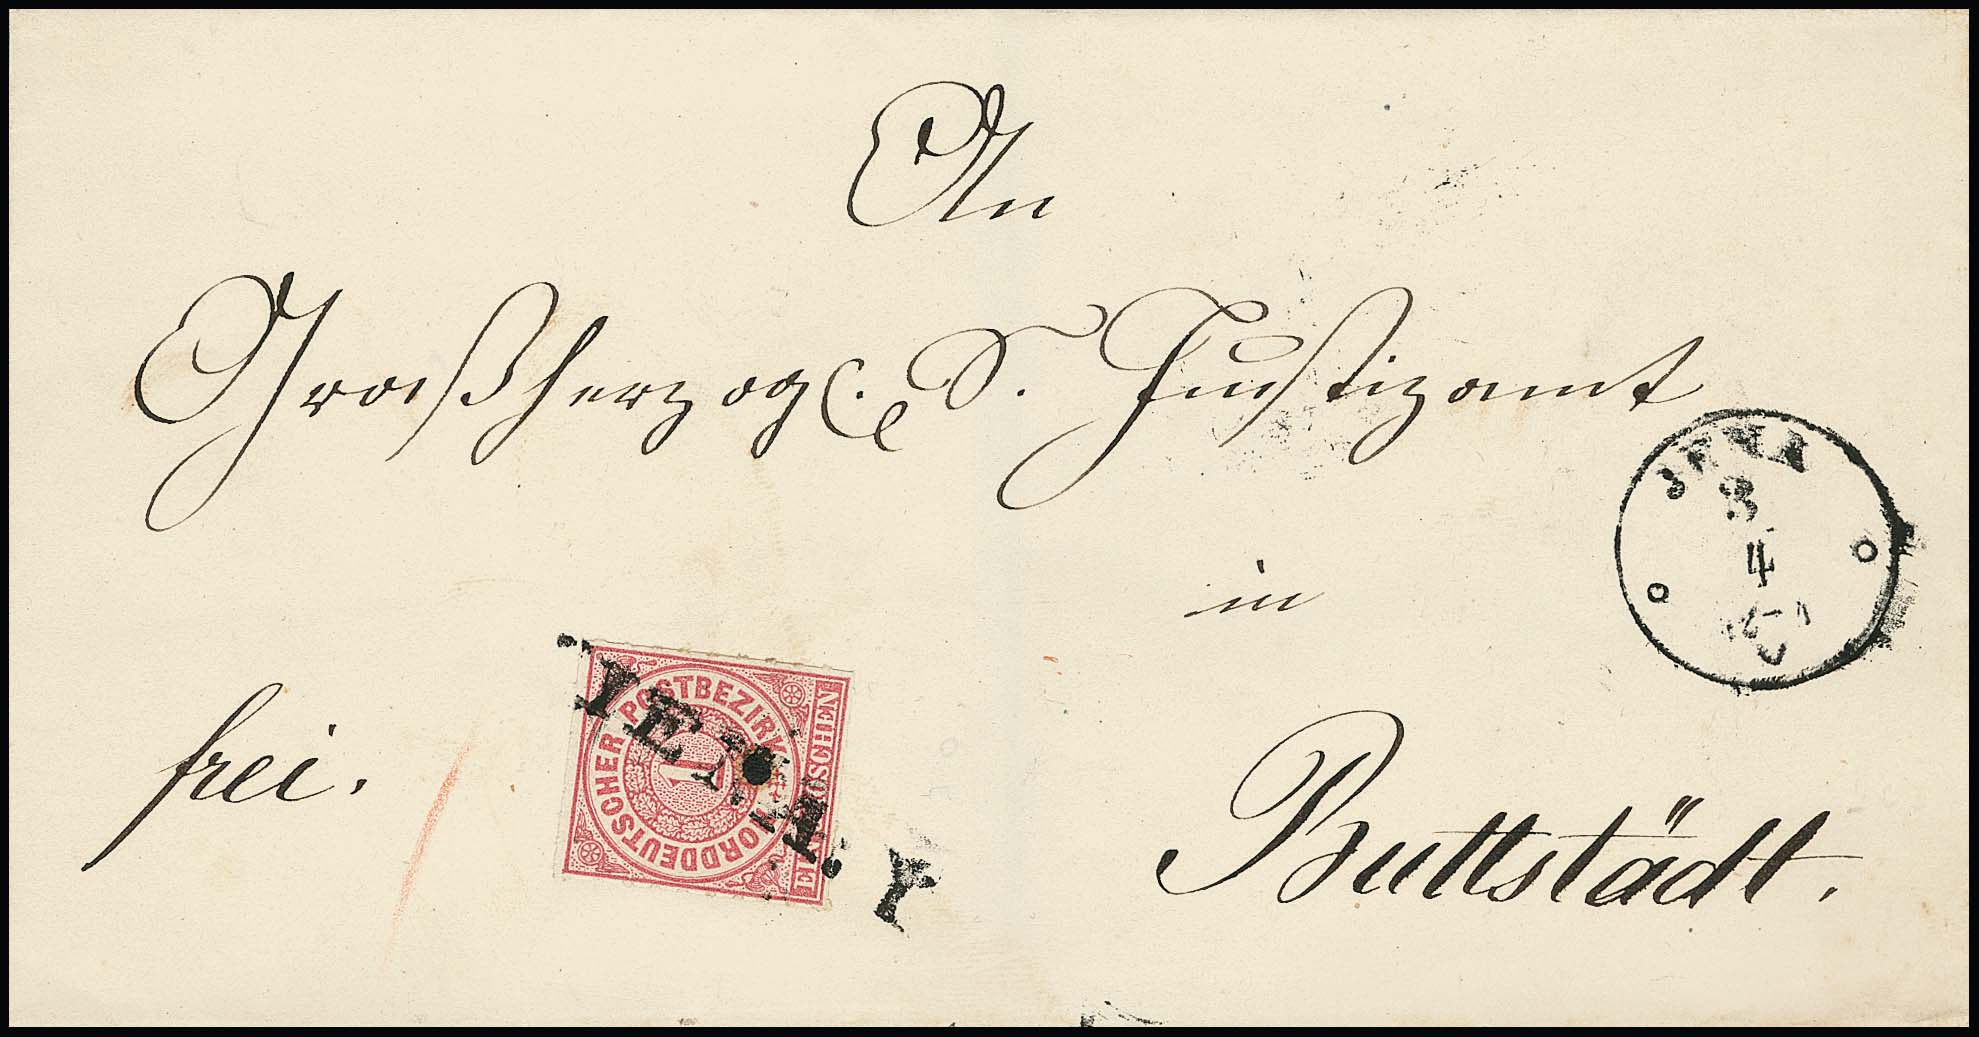 An
Großherzogl. S. Justizamt
in
Buttstädt.
frei.
JENA
3
4
NORDDEUTSCHER POSTBEZIRK
1
JENA. I